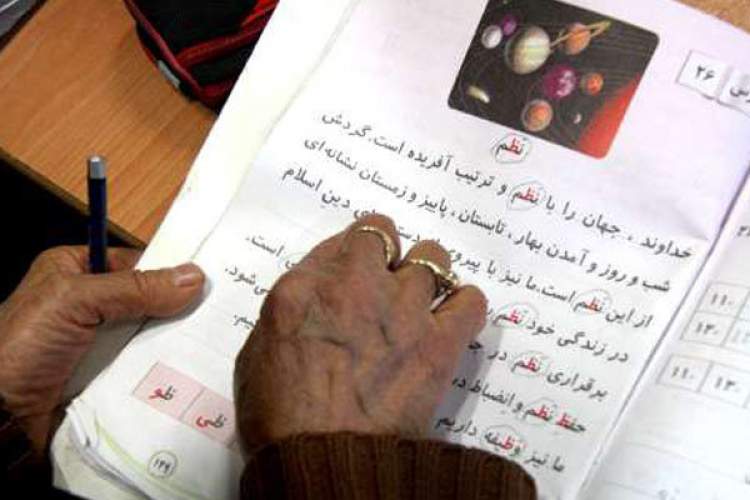 ۲۶
نظم
خداوند ، جهان را با نظم و ترتیب آفریده است. گردش
شب و روز و آمدن بهار ، تابستان ، پاییز و زمستان نشانه‌ای
از این نظم است. ما نیز با پیروی از دین اسلام
در زندگی خود نظم است.
برقراری نظم در می‌شود.
حفظ نظم و انضباط
ما نیز وظیفه داریم
ظی ظو
۱۴۶
۱۱۰
۱۳۰
۱۱۰ ۱۳۰